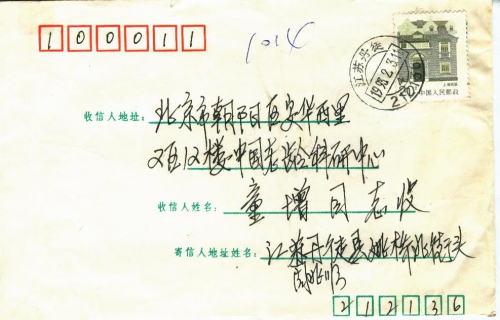 100011
1014
江苏丹徒
中国人民邮政
收信人地址: 北京市朝阳区安华西里
2区12楼中国老龄科研中心
收信人姓名: 童增同志收
寄信人地址姓名: 江苏丹徒县姚桥北街头
212136